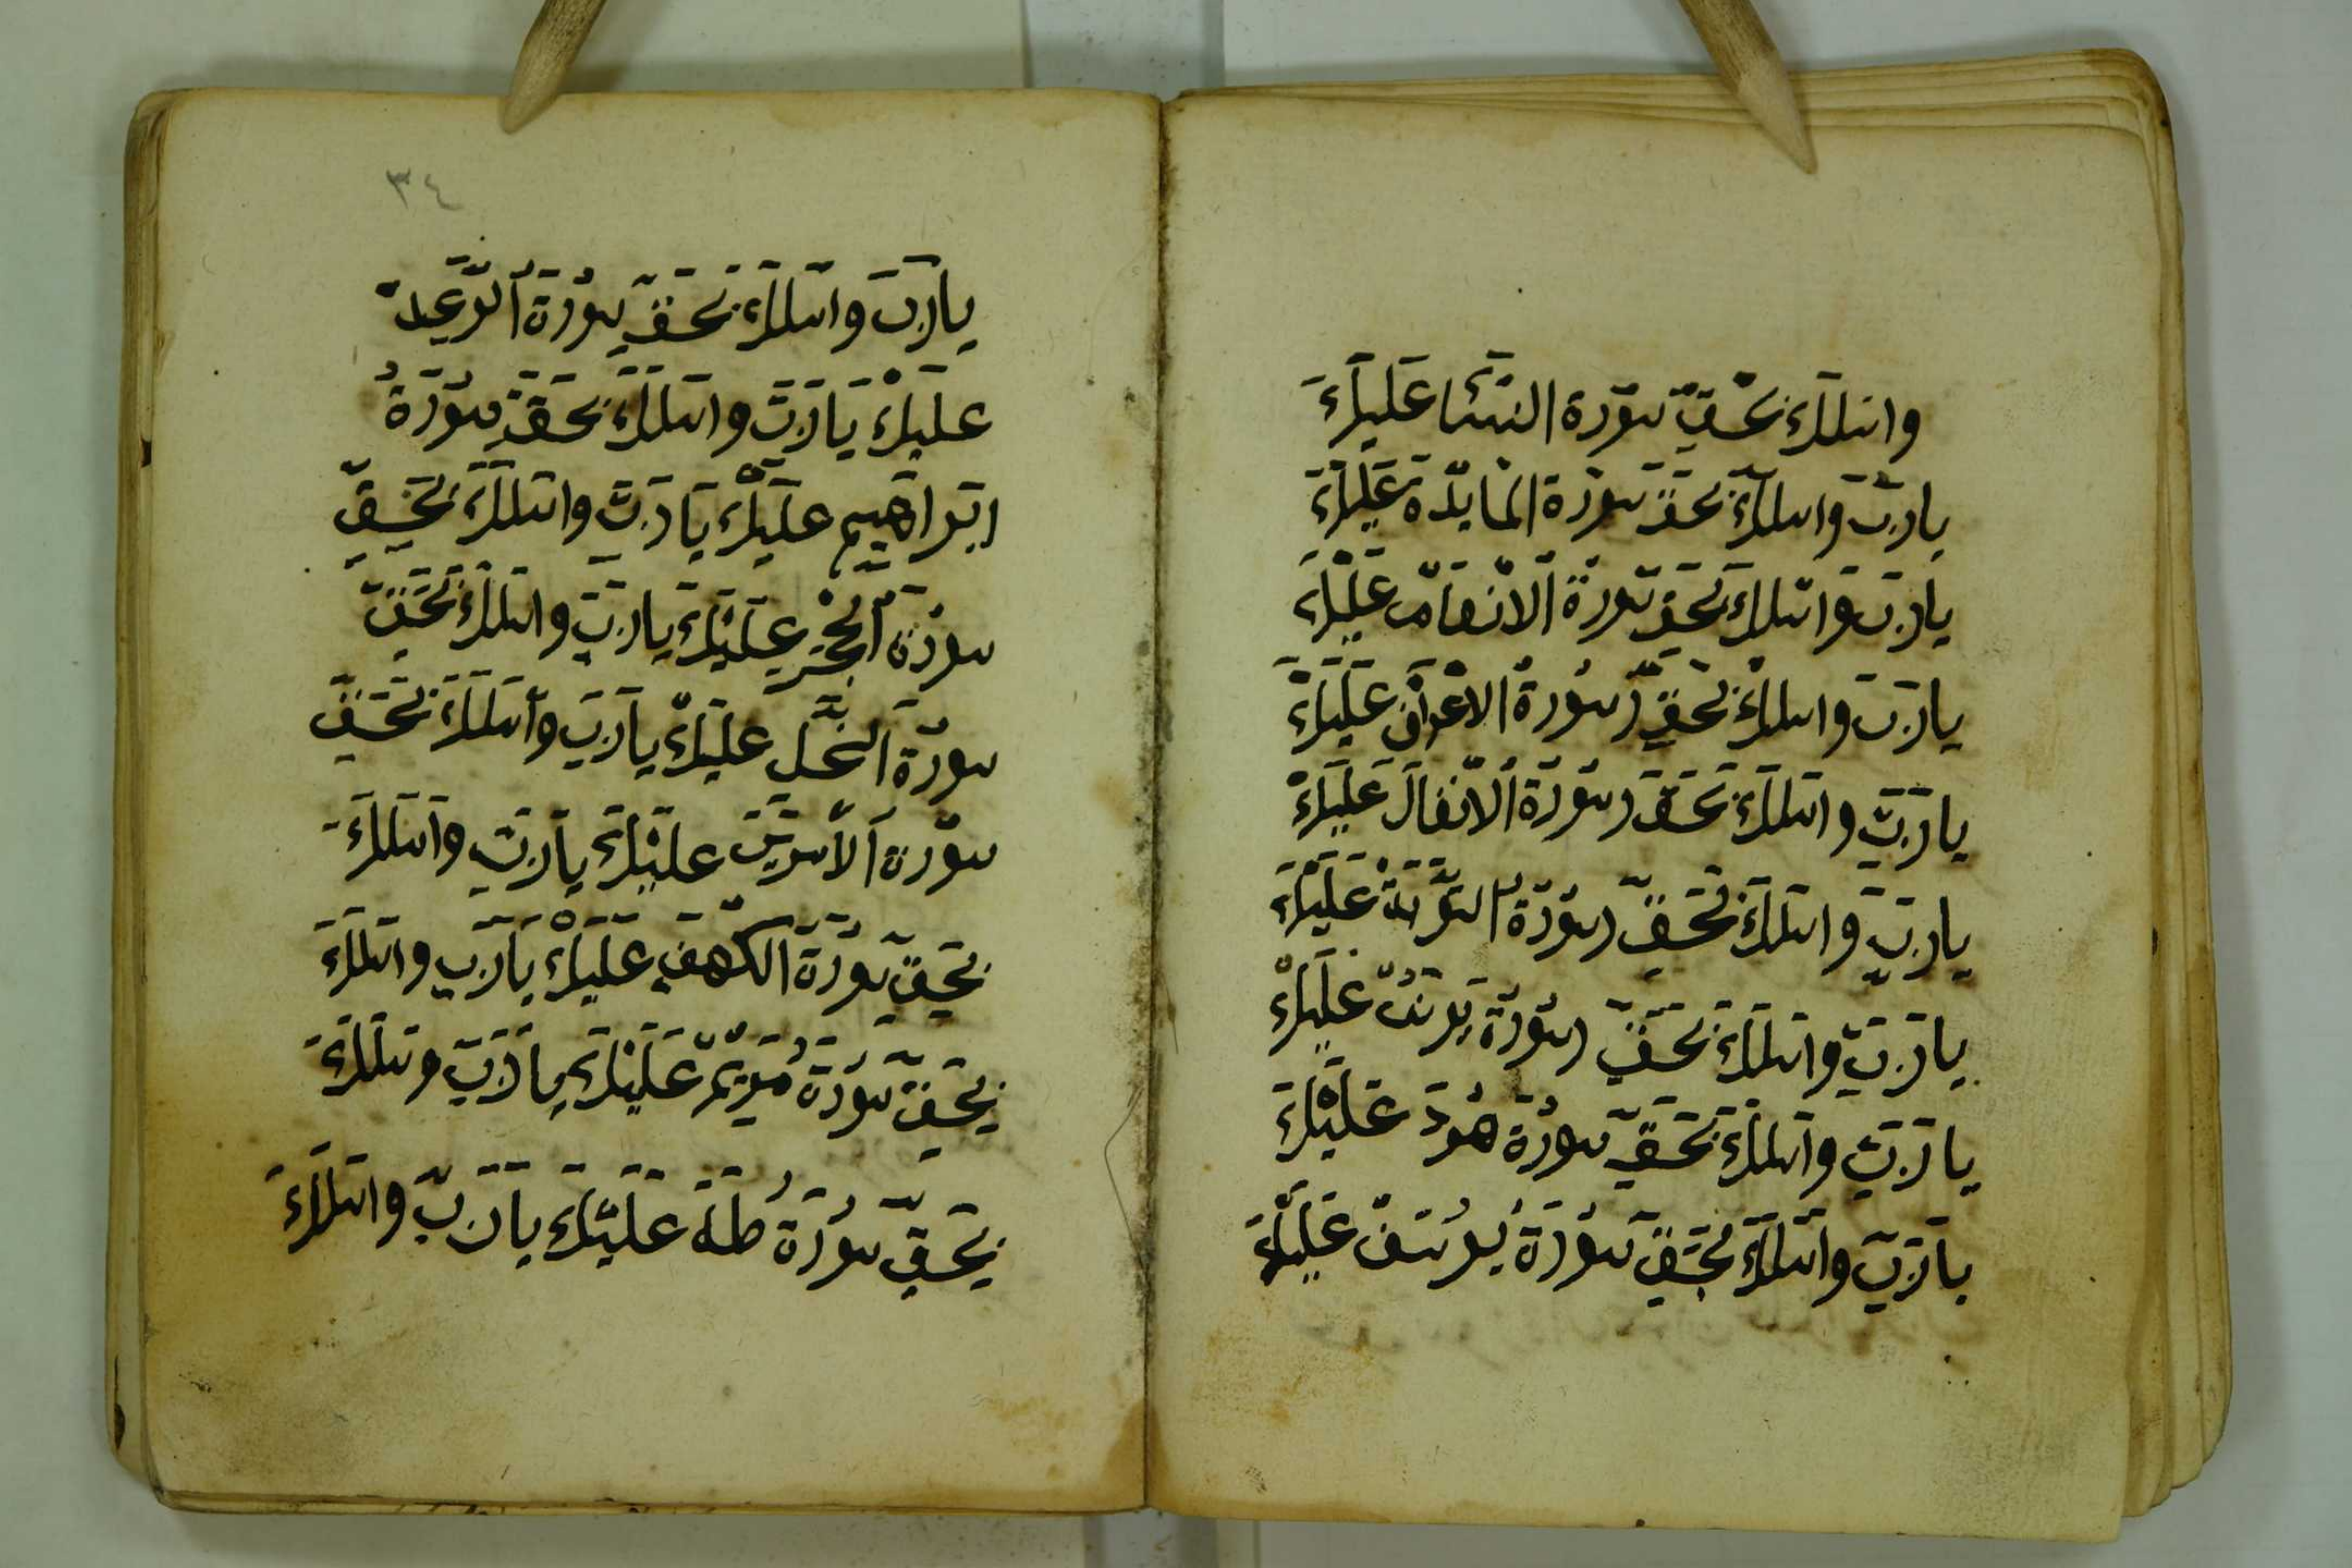 واسلك بحق سورة النسا عليك
يا رب واسلك بحق سورة المايدة عليك
يا رب واسلك بحق سورة الانعام عليك
يا رب واسلك بحق سورة الاعراف عليك
يا رب واسلك بحق سورة الانفال عليك
يا رب واسلك بحق سورة التوبة عليك
يا رب واسلك بحق سورة يونس عليك
يا رب واسلك بحق سورة هود عليك
يا رب واسلك بحق سورة يوسف عليك
٣٤
يا رب واسلك بحق سورة الرعد
عليك يا رب واسلك بحق سورة
ابراهيم عليك يا رب واسلك بحق
سورة الحجر عليك يا رب واسلك بحق
سورة النحل عليك يا رب واسلك بحق
سورة عليك يا رب واسلك
بحق سورة الكهف عليك يا رب واسلك
بحق سورة مريم عليك يا رب وسلك
بحق سورة طه عليك يا رب واسلك